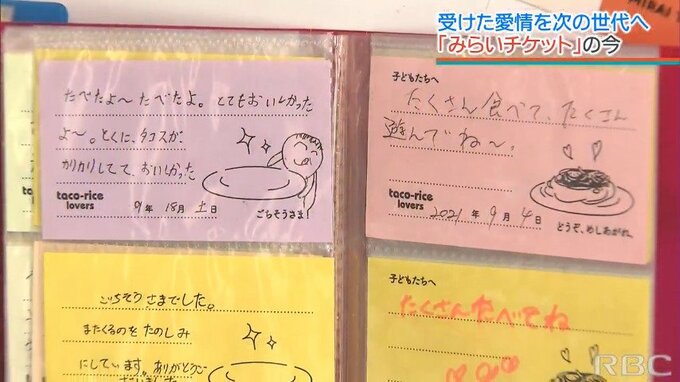 受けた愛情を次の世代へ
「みらいチケット」の今
たべたよ〜たべたよ。とてもおいしかった
よ〜。とくに、タコスが、
かりかりしてて、おいしかった
taco-rice
lovers
9年 18月 土日
ごちそうさま!
子どもたちへ
たくさん食べて、たくさん
遊んでね〜。
taco-rice
lovers
2021年 9月 4日
どうぞ、めしあがれ。
ごちそうさまでした。
またくるのをたのしみ
にしています。ありがとうご
ざいました
子どもたちへ
たくさんたべてね
RBC